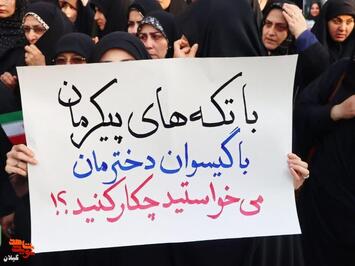 با تکه‌های پیکرمان
با گیسوان دخترمان
می‌خواستید چکار کنید؟!
گیلان